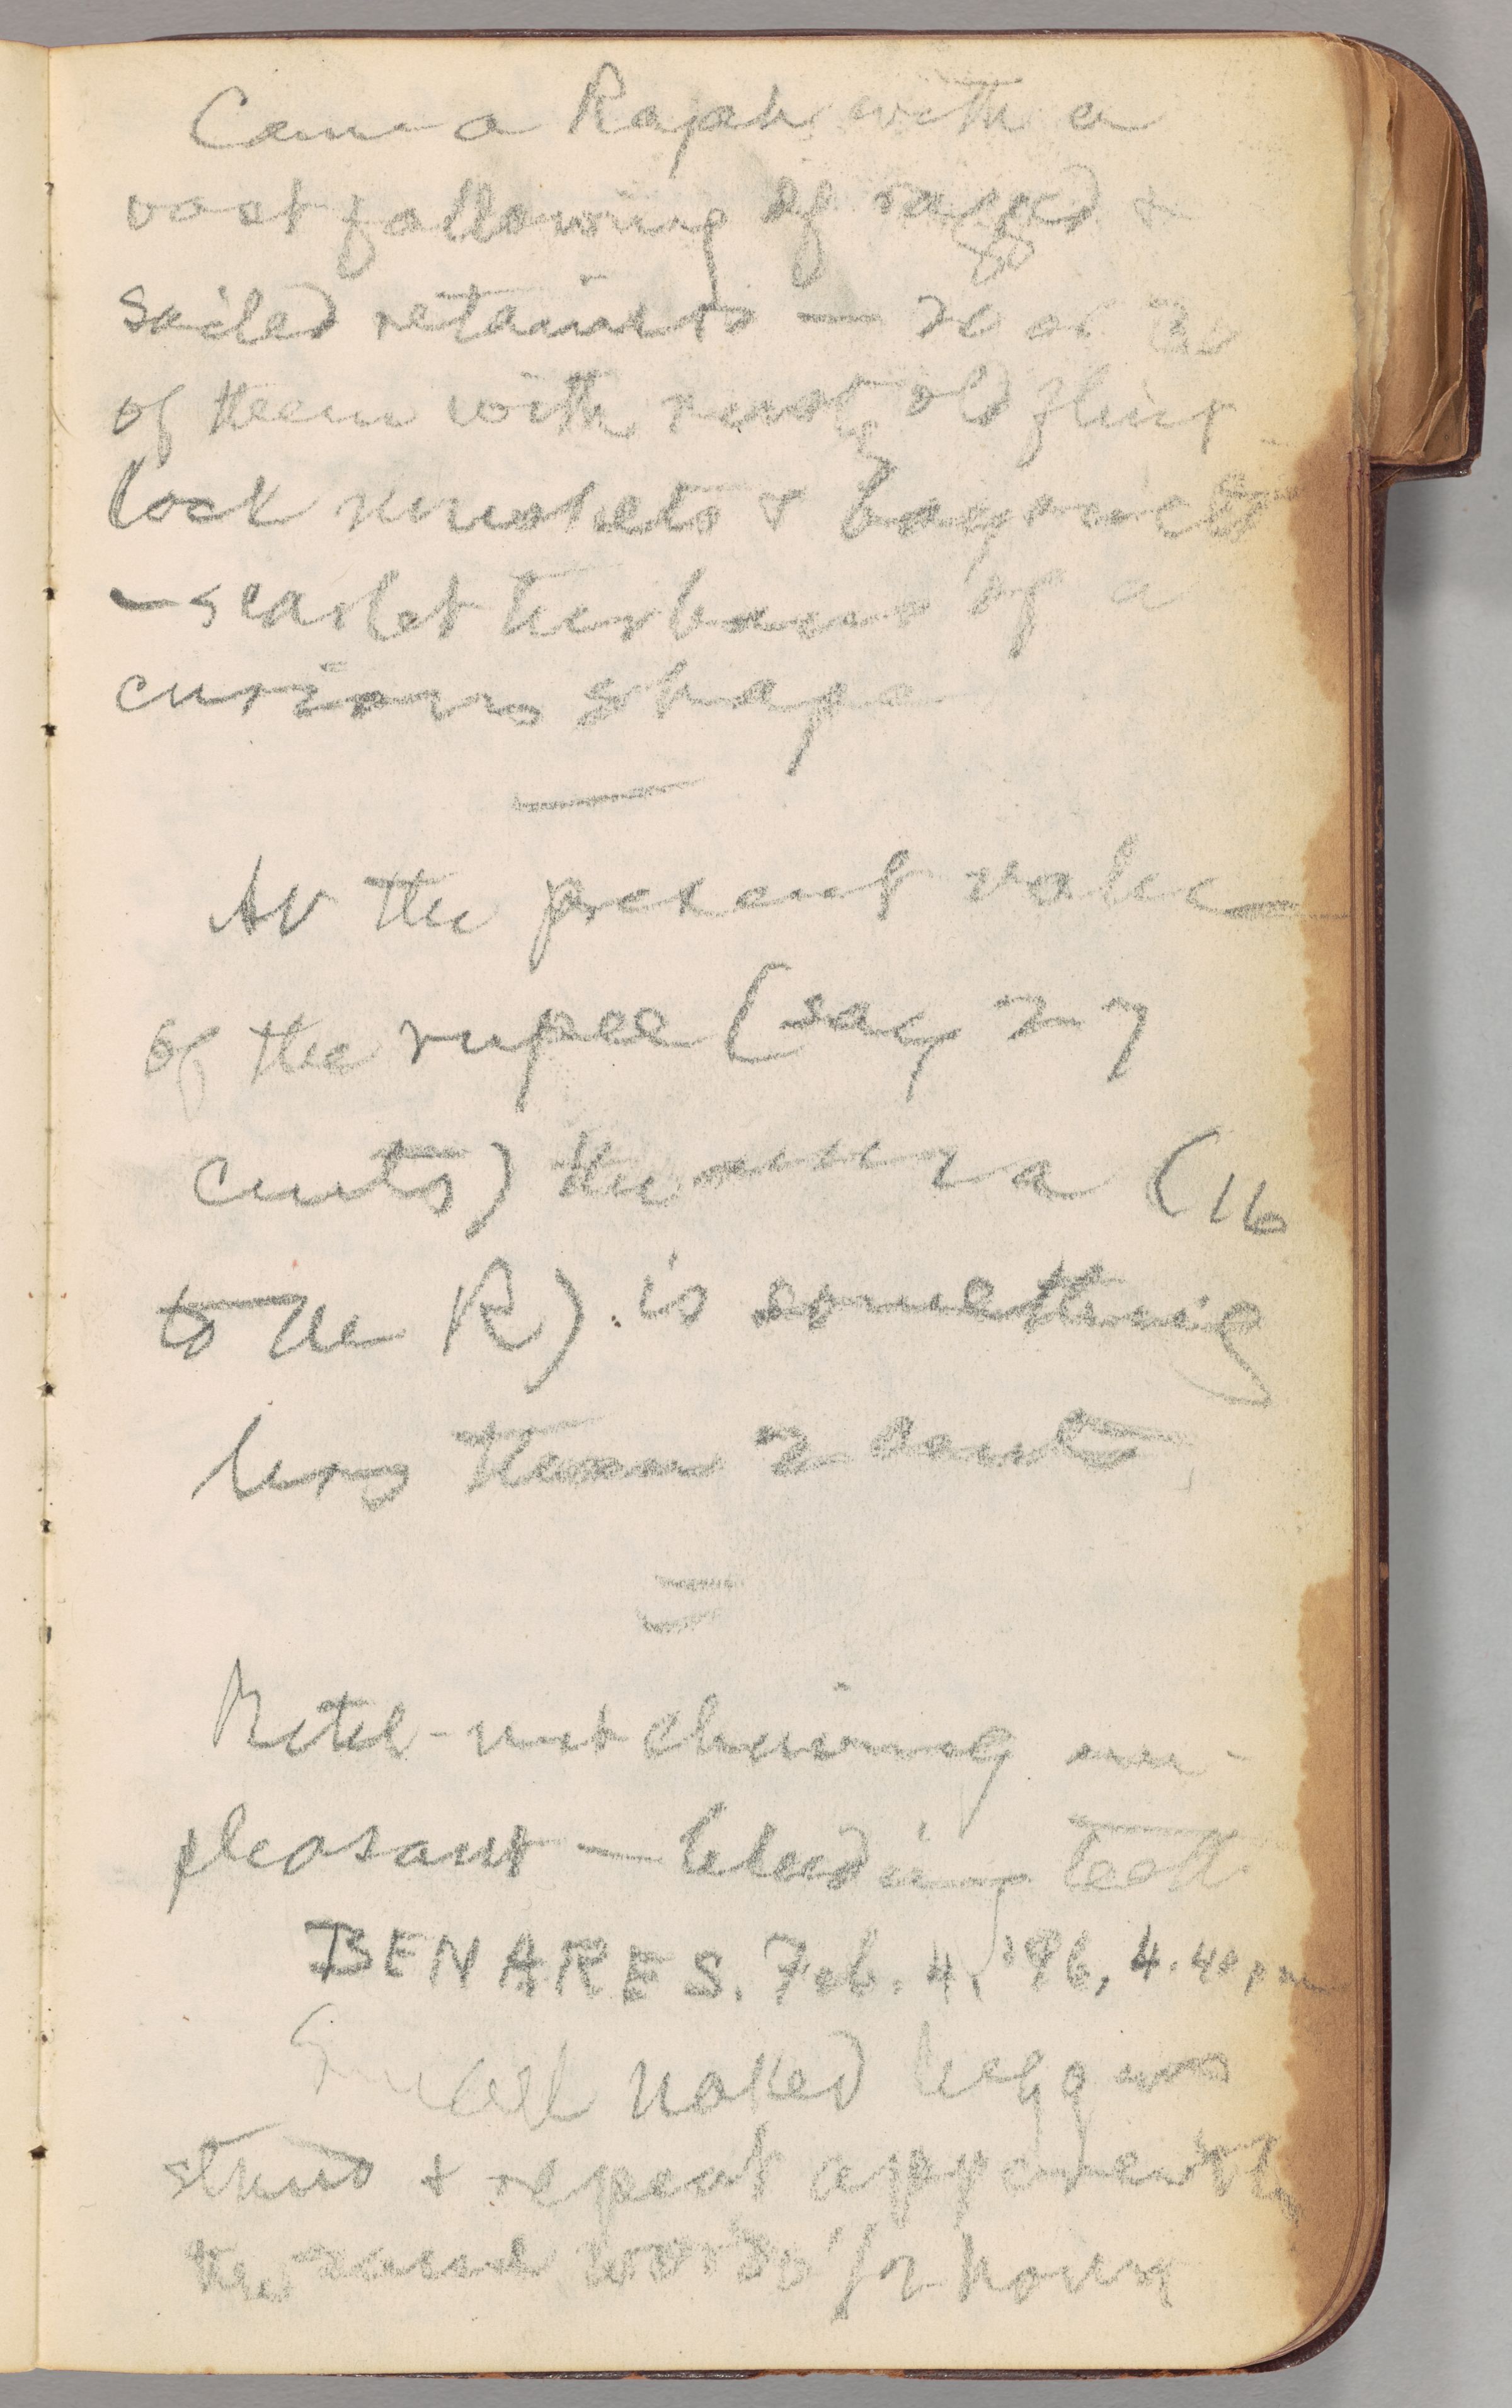 Came a Rajah with a
vast following of ragged &
soiled retainers — 20 or 30
of them with rusty old flint-
lock muskets & bayonets
— scarlet turbans of a
curious shape
At the present value
of the rupee (say 27
cents) the anna (16
to the R) is something
less than 2 cents
Betel-nut chewing un-
pleasant — bleeding teeth
BENARES. Feb. 4, '96, 4.40 pm
Small naked beggars
stand & repeat apparently
the same words 1/2 hour